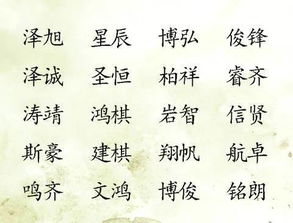 泽旭 星辰 博弘 俊锋
泽诚 圣恒 柏祥 睿齐
涛靖 鸿棋 岩智 信贤
斯豪 建棋 翔帆 航卓
鸣齐 文鸿 博俊 铭朗